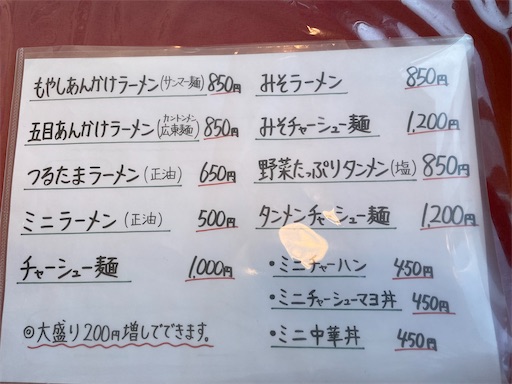 もやしあんかけラーメン(サンマー麺) 850円
五目あんかけラーメン(広東麺 カントンメン) 850円
つるたまラーメン(正油) 650円
ミニラーメン(正油) 500円
チャーシュー麺 1,000円
◎大盛り200円増しでできます。
みそラーメン 850円
みそチャーシュー麺 1,200円
野菜たっぷりタンメン(塩) 850円
タンメンチャーシュー麺 1,200円
・ミニチャーハン 450円
・ミニチャーシューマヨ丼 450円
・ミニ中華丼 450円